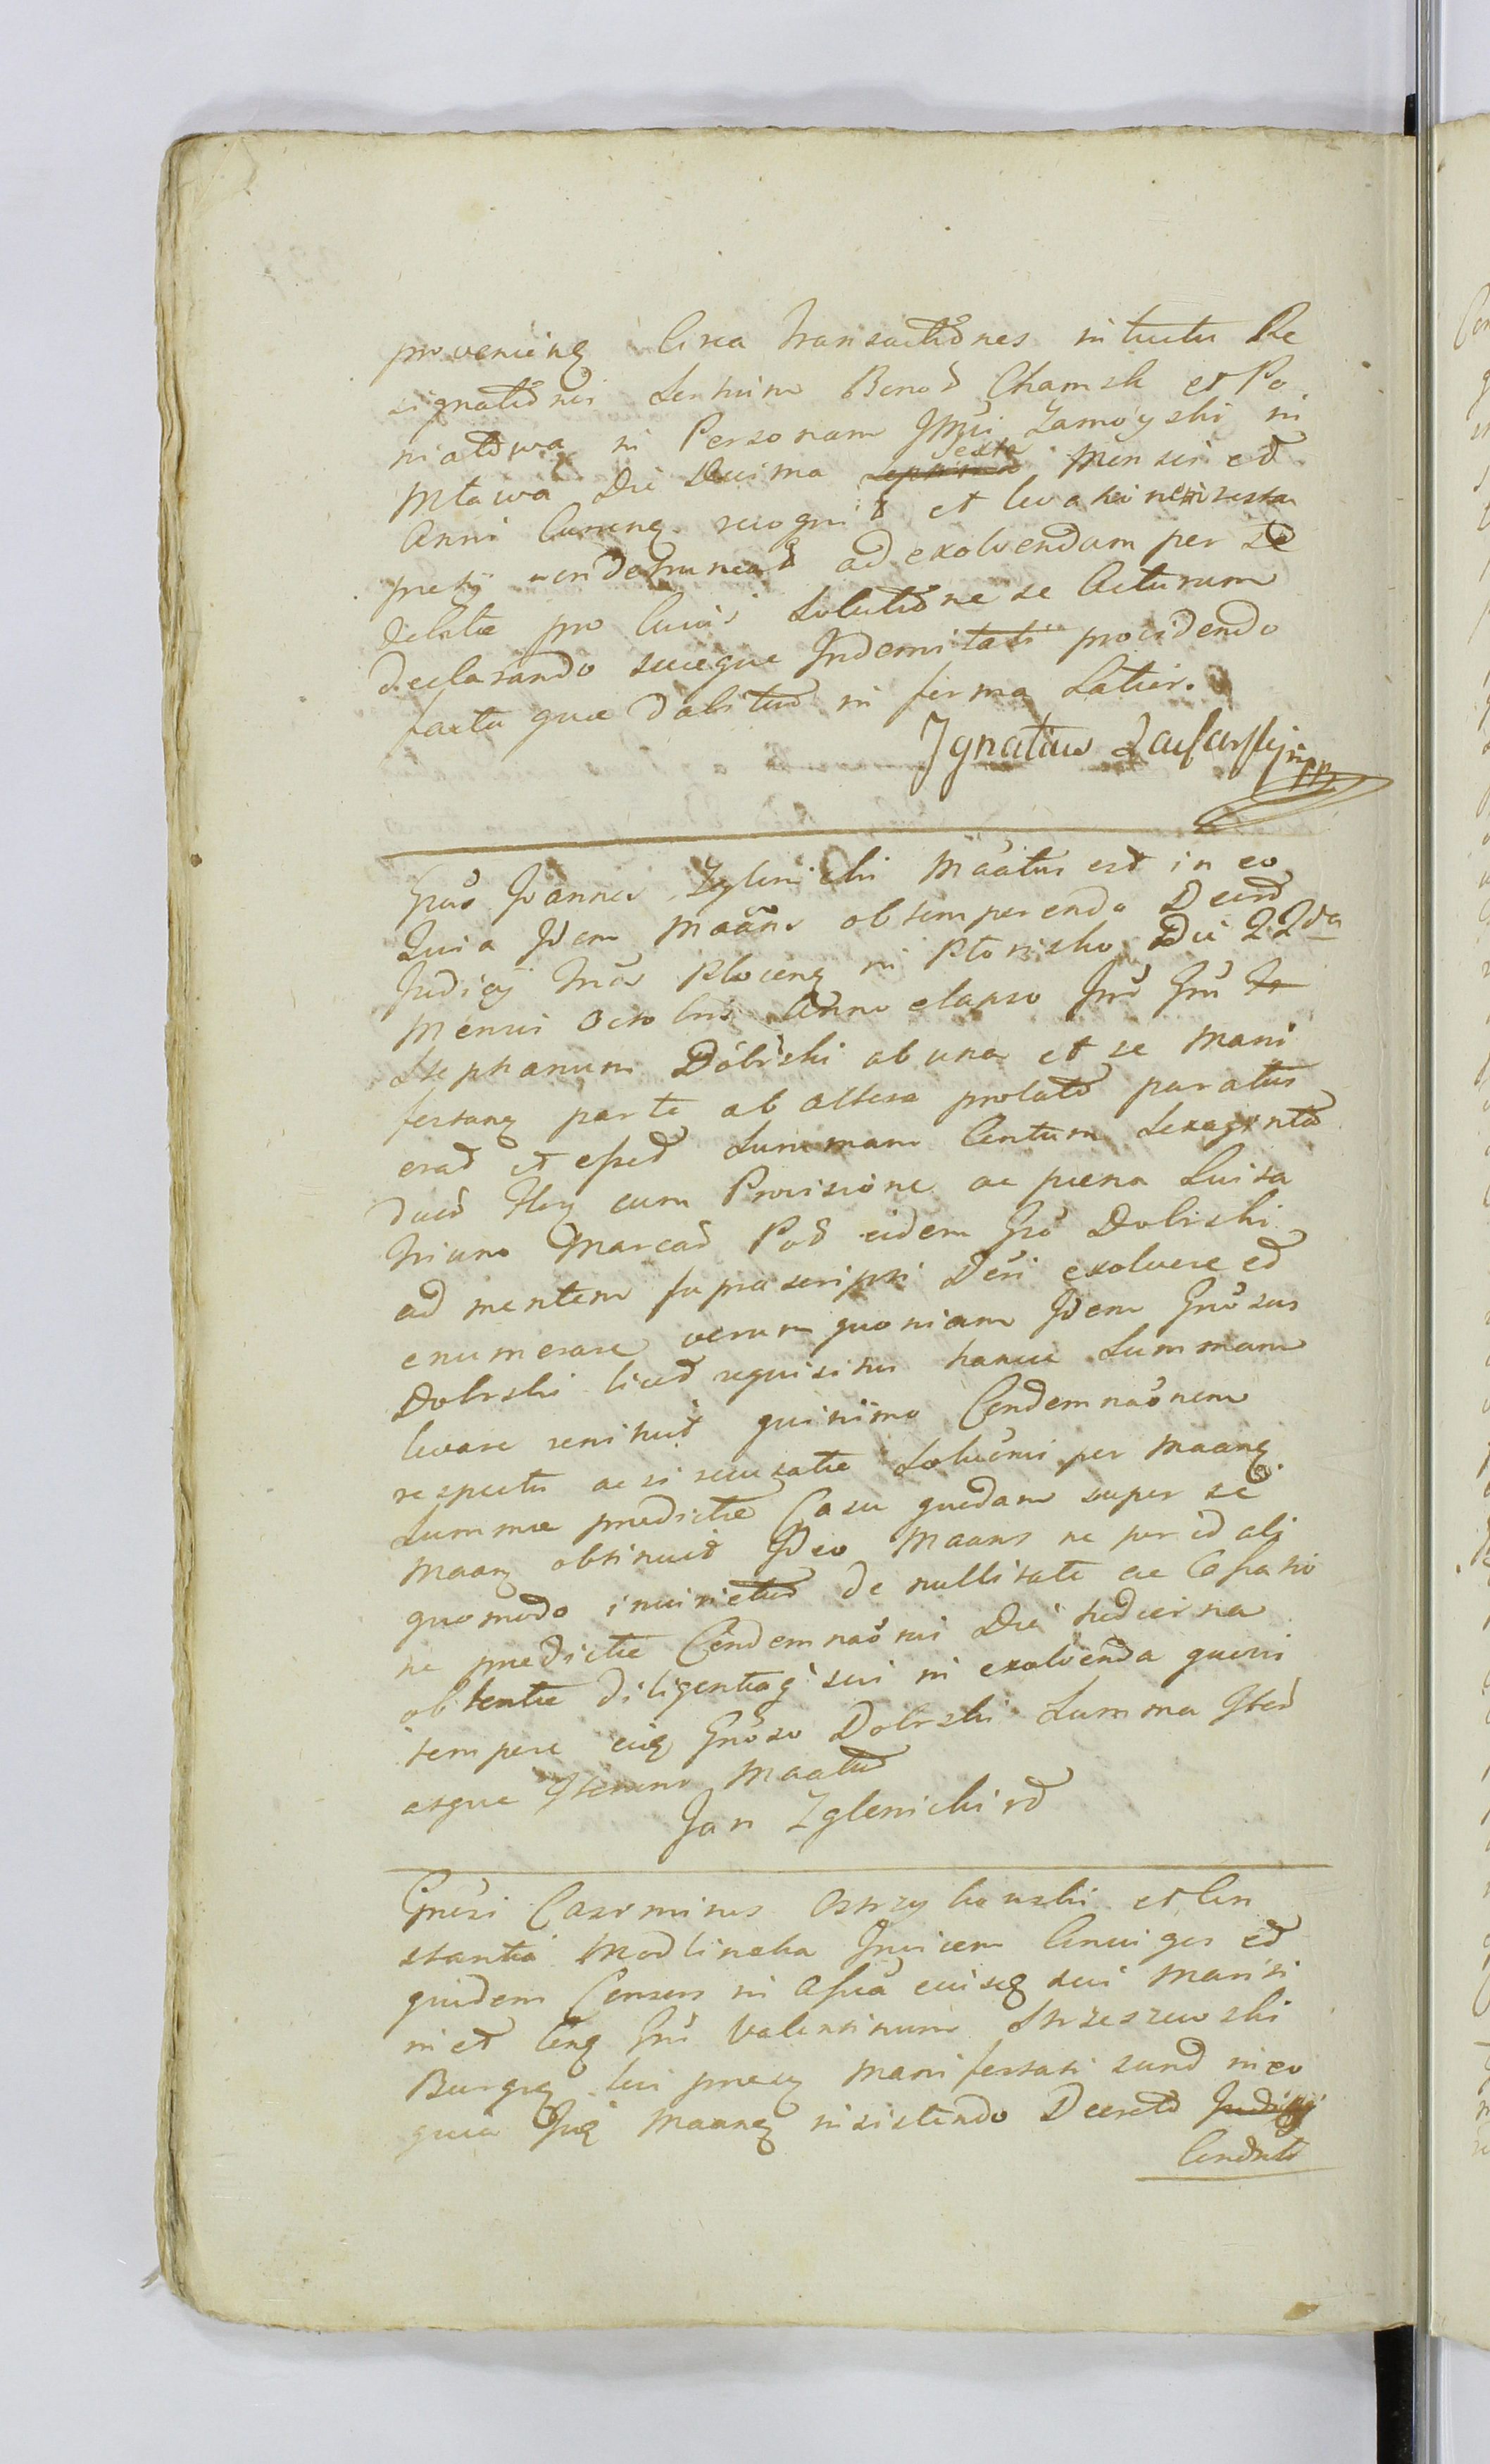 provening circa transactiones intuitu Re
signationis Sortium Bonor Chamsk et Po
niatowa in Personam Zamoyski in
Mława Die Decima <s>septima</s> sexta Mensis et
Anni Curreng recognit et levationem
pretij ad exolvendam per se
debitæ pro cuius Solutione se Acturum
declarando suæque Indemnitati providendo
facta quæ dabitur in forma Latior.
Ignatius
Joannes Zglenicki Maatus est in eo
Quia Idem Maans obtemperendo Decret
Judicij Ploceng in Płonisko Die 22da
Mensis Octobris Anno elapso Int Gm
Stephanum Dobrski ab una et se Mani
festang parte ab altera prolato paratus
erat et esset Summam Centum Sexaginta
duos flor cum Provisione ac pœna Luita
trium Marcar Pol eidem Gso Dobrski
ad mentem supra scripti Dcri exolvere et
enumerare verum quoniam Idem Gnosus
Dobrski licet requisitus hancce Summam
levare renituit quinimo Condemnaonem
respectu ac si recusatæ Solucnis per Maang
Summæ prædictæ Casu quodam super se
Maang obtinuit Ideo Maans ne per id ali
quomodo inuirietur de nullitate ac Cassatio
ne prædictæ Condemnaonis Die hodierna
obtentæ diligentiaq sui in exolvenda quovis
tempore eidg Gnoso Dobrski Summa Iter
atque Iterum Maatur
Jan Zglenicki
Gnusi Casimirus Ostrzykowski et Con
stantia Modlinska Invicem Conjuges et
quidem Consors in Assia ejusdg sui Mariti
Gm Valentinum Strzeszewski
Burgrg præng Manifestati sunt in eo
quia Maang insistendo Decreto <s>Judicij</s>